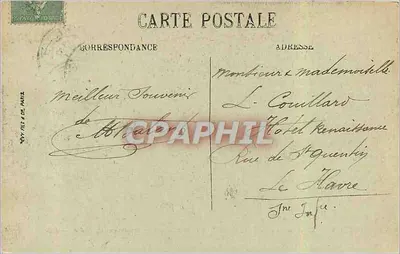 CARTE POSTALE
CORRESPONDANCE
ADRESSE
Meilleur Souvenir
de
Monsieur & Mademoiselle
L. Couillard
Hôtel Renaissance
Rue de St Quentin
Le Havre
Sne Infre
CPAPHIL